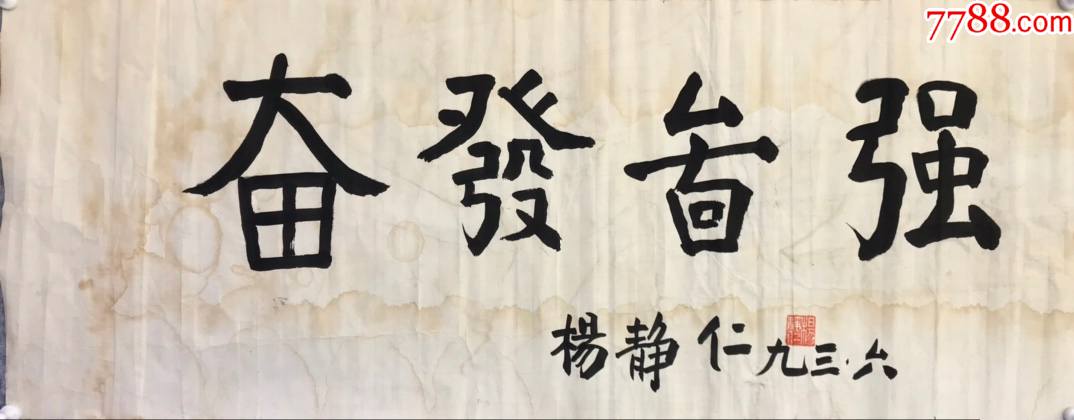 7788.com
奋發啚强
楊静仁 九三·六